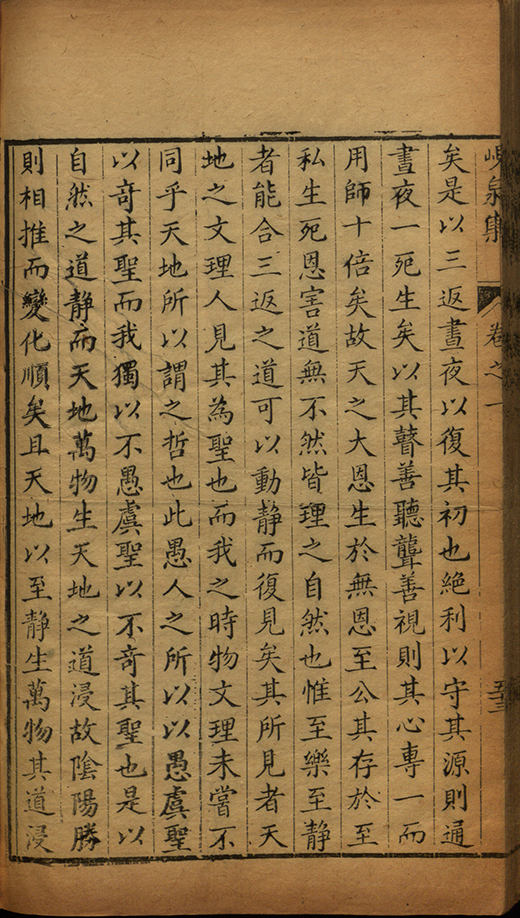 峴泉集
卷之一
至三
矣是以三返晝夜以復其初也絶利以守其源則通
晝夜一死生矣以其瞽善聽聾善視則其心專一而
用師十倍矣故天之大恩生於無恩至公其存於至
私生死恩害道無不然皆理之自然也惟至樂至静
者能合三返之道可以動静而復見矣其所見者天
地之文理人見其為聖也而我之時物文理未嘗不
同乎天地所以謂之哲也此愚人之所以以愚虞聖
以奇其聖而我獨以不愚虞聖以不奇其聖也是以
自然之道静而天地萬物生天地之道浸故陰陽勝
則相推而變化順矣且天地以至静生萬物其道浸